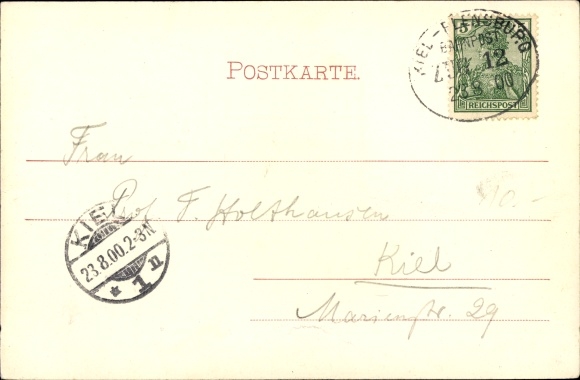 POSTKARTE.
KIEL-FLENSBURG
BAHNPOST
ZUG 12
23 8 00
REICHSPOST
Frau
Prof. F. Holthausen
Kiel
Marienstr. 29
KIEL
23.8.00.2-3N
* 1 n